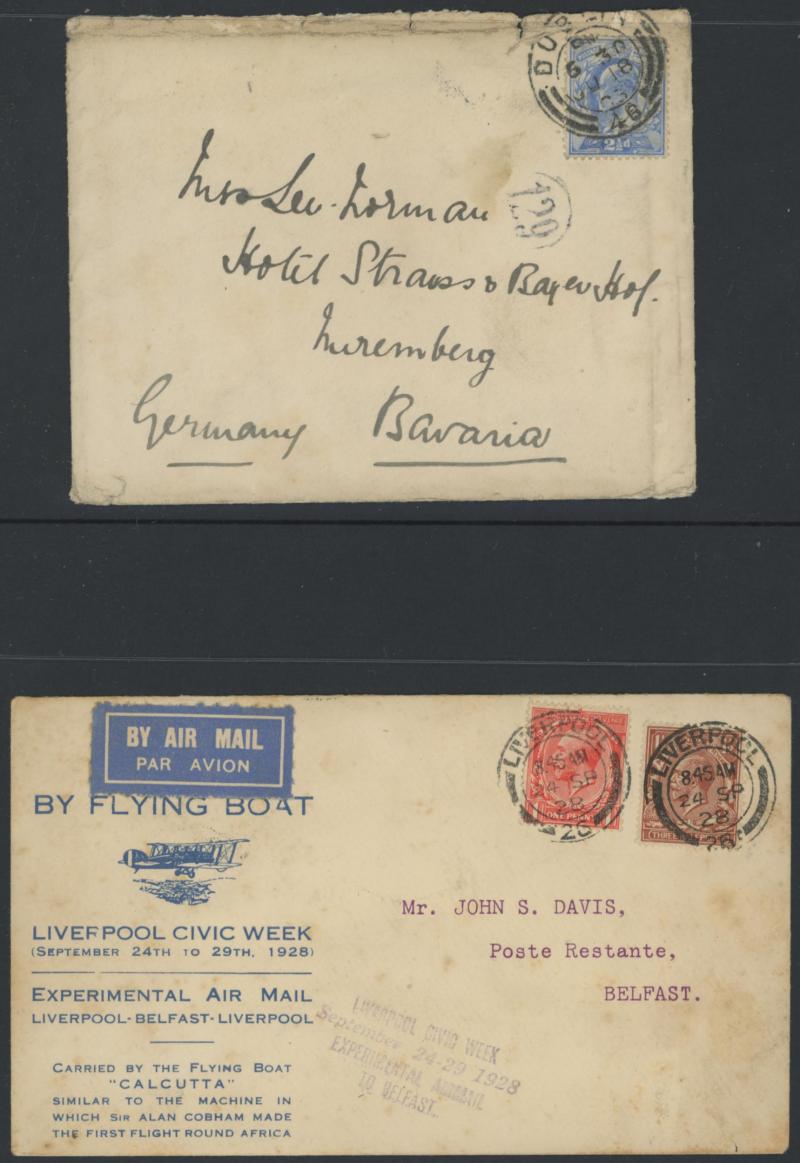 DUBLIN
6 30 PM
JU 18
46
2½d
129
Miss Lee-Norman
Hotel Strauss & Bayer Hof.
Nuremberg
Germany Bavaria
BY AIR MAIL
PAR AVION
BY FLYING BOAT
LIVERPOOL CIVIC WEEK
(SEPTEMBER 24TH TO 29TH, 1928)
EXPERIMENTAL AIR MAIL
LIVERPOOL-BELFAST-LIVERPOOL
CARRIED BY THE FLYING BOAT
"CALCUTTA"
SIMILAR TO THE MACHINE IN
WHICH SIR ALAN COBHAM MADE
THE FIRST FLIGHT ROUND AFRICA
LIVERPOOL
8.45 AM
24 SP
28
26
ONE PENNY
LIVERPOOL
8.45 AM
24 SP
28
26
THREE
Mr. JOHN S. DAVIS,
Poste Restante,
BELFAST.
LIVERPOOL CIVIC WEEK
September 24-29 1928
EXPERIMENTAL AIRMAIL
TO BELFAST.